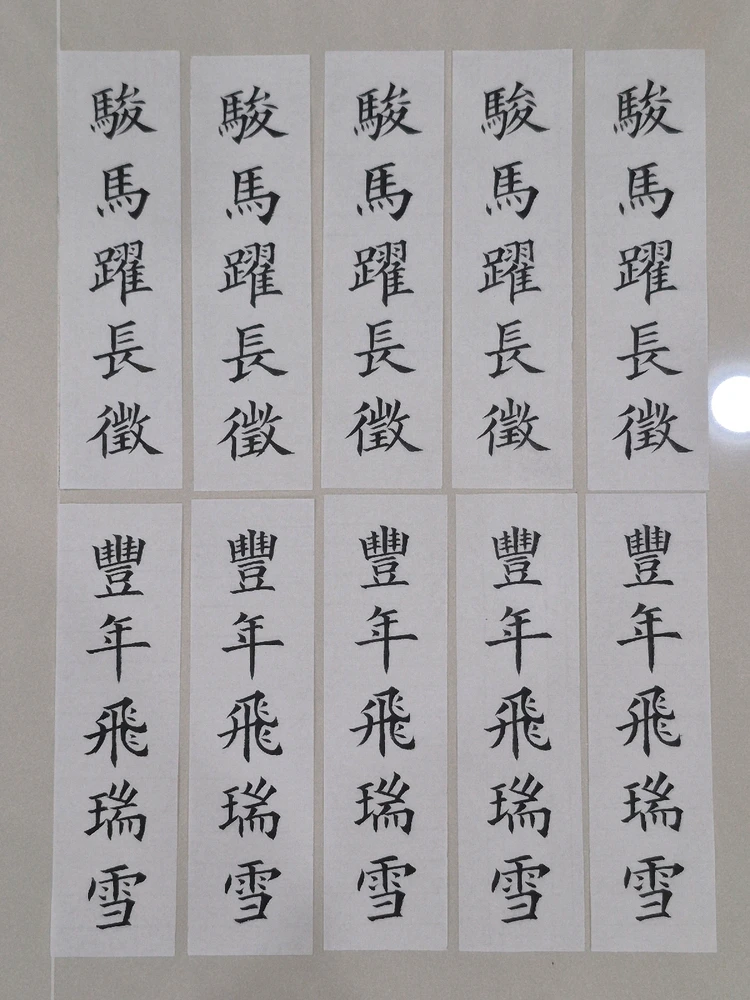 駿馬躍長徵
駿馬躍長徵
駿馬躍長徵
駿馬躍長徵
駿馬躍長徵
豐年飛瑞雪
豐年飛瑞雪
豐年飛瑞雪
豐年飛瑞雪
豐年飛瑞雪